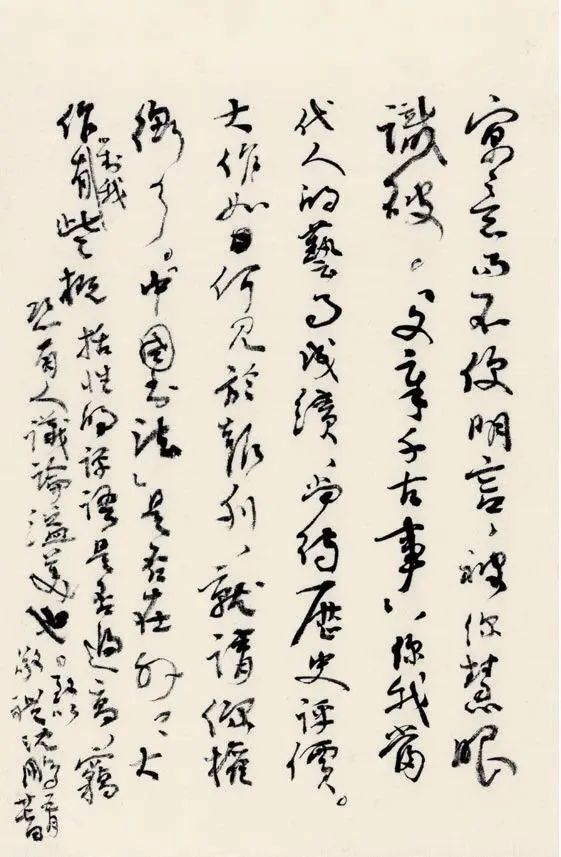 寓意而不便明言、被你慧眼
识破。「文章千古事」、你我当
代人的艺事成绩、尚待历史评价。
大作如何见於报刊、就请你权
衡了。「中国书法」是否在外？大
作对我有些概括性的评语是否过高、窃
恐有人议论溢美也。
敬礼 沈鹏